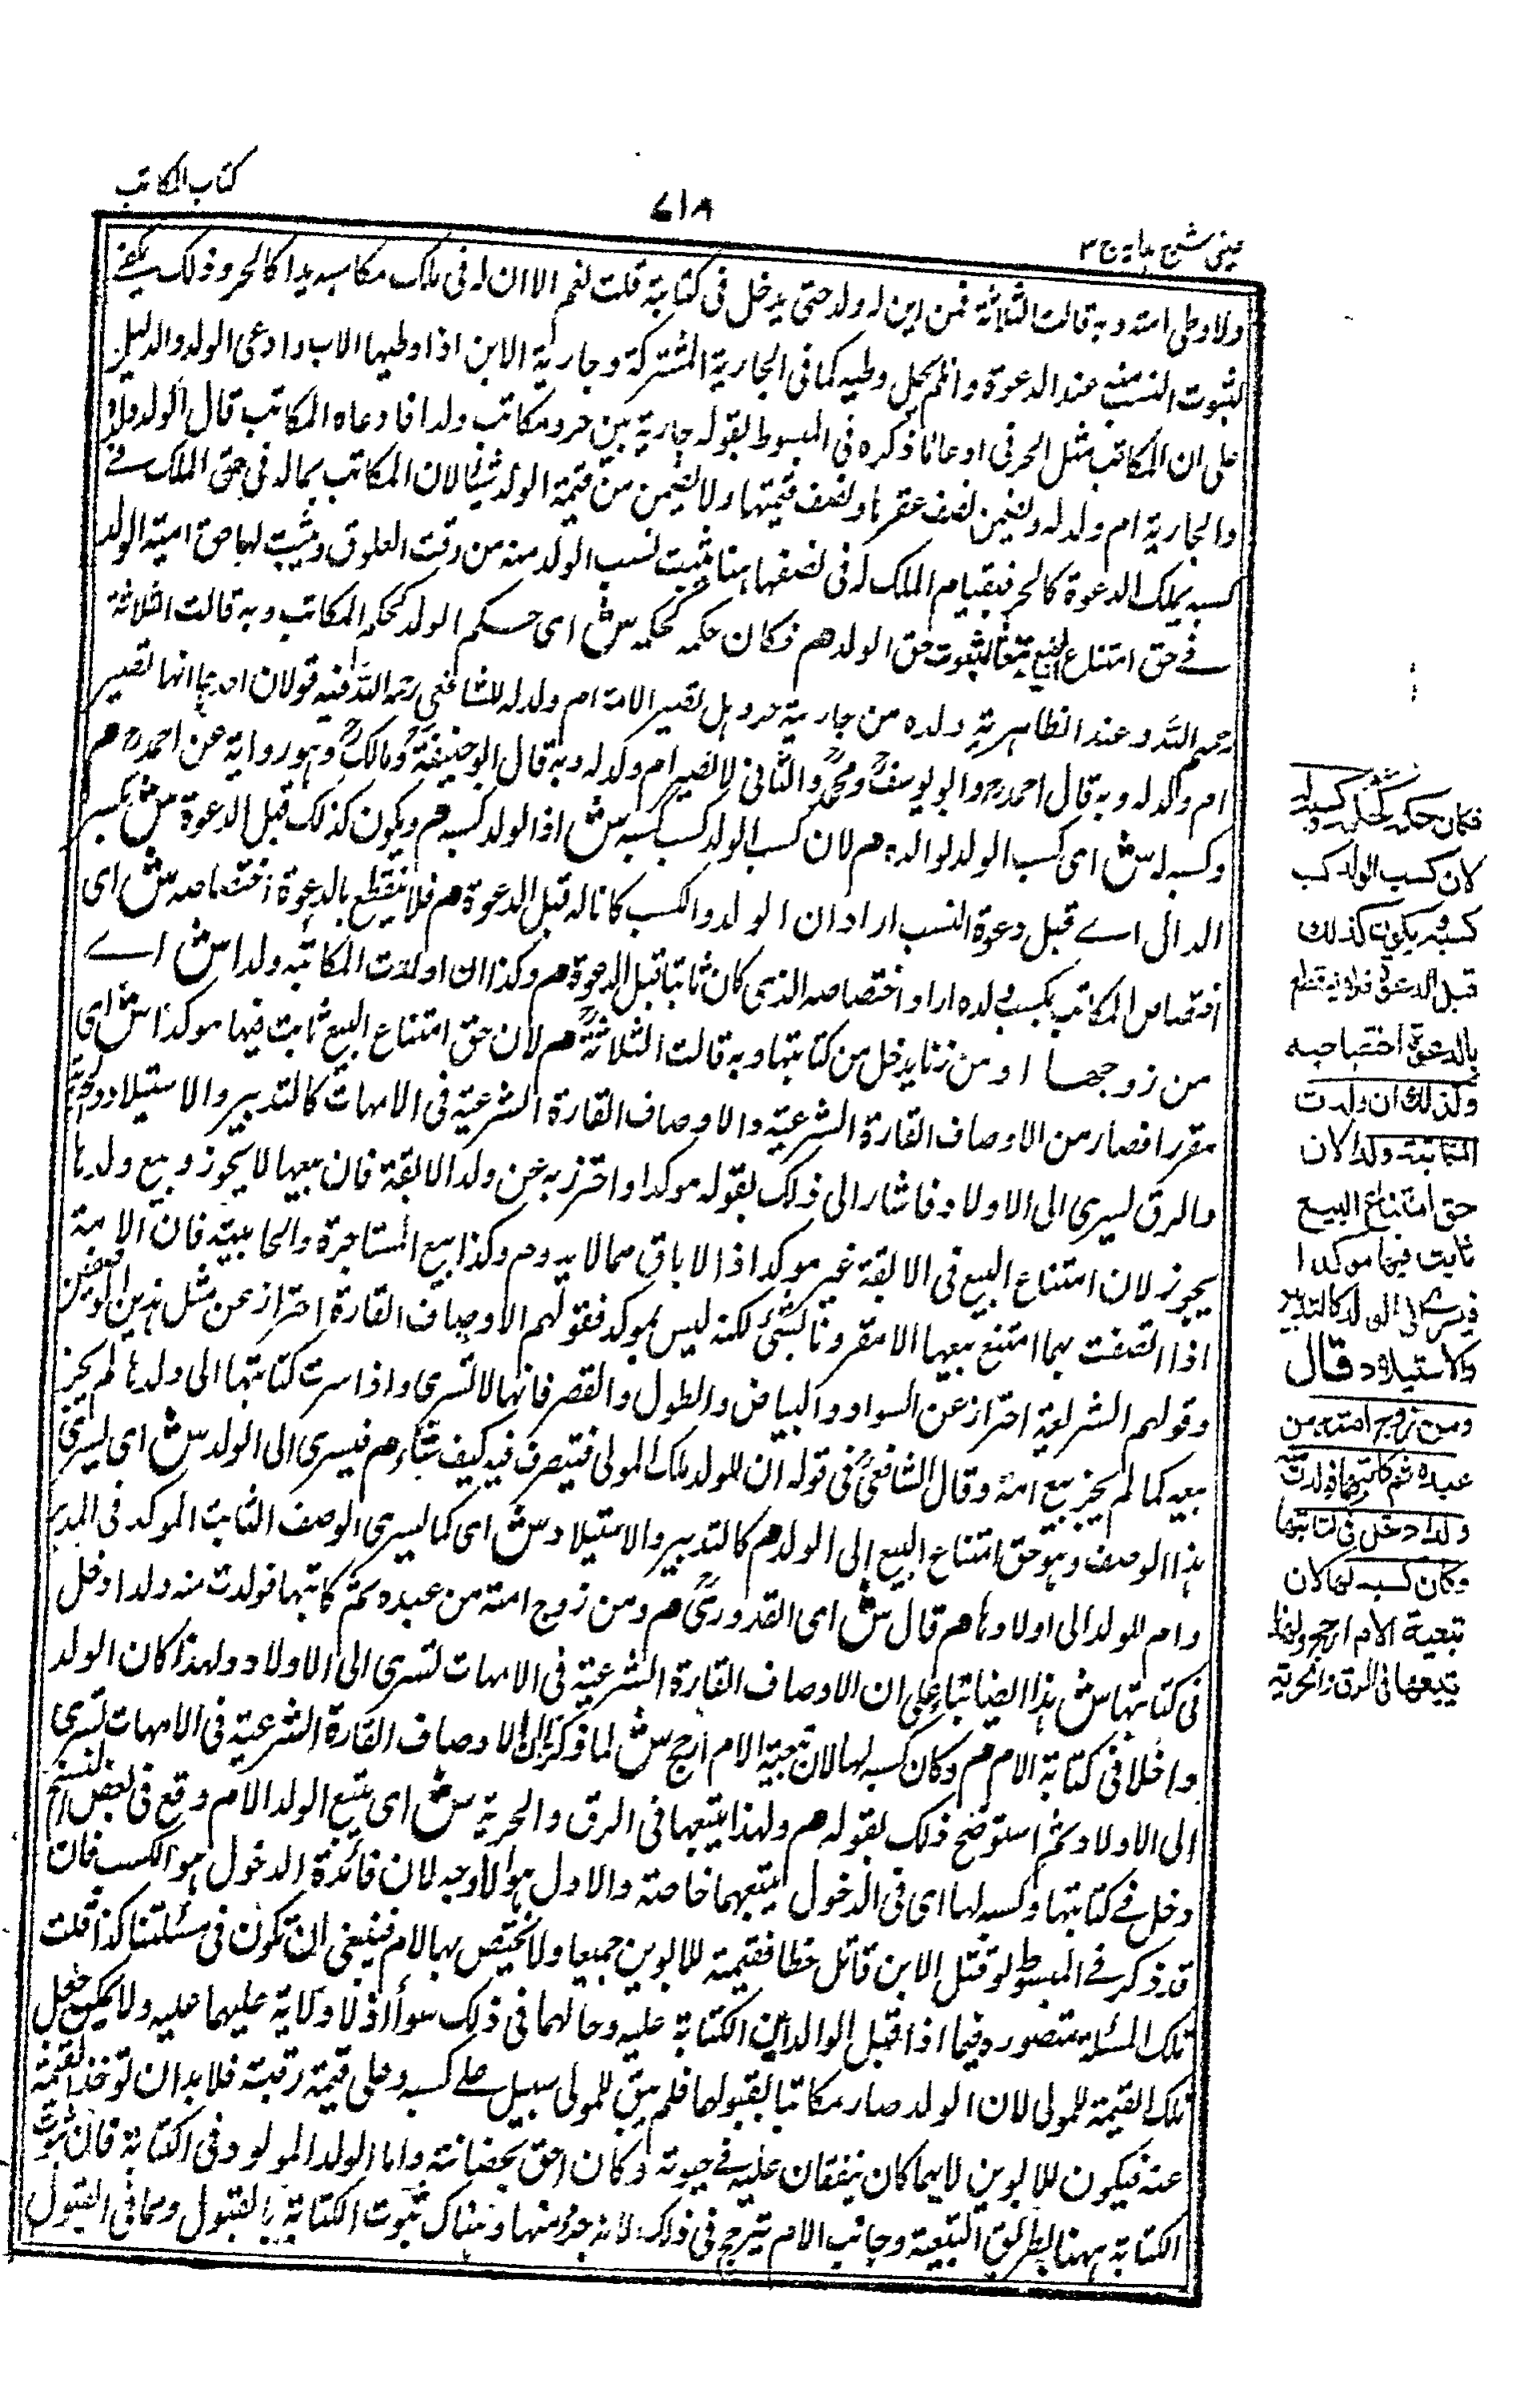 كتاب المكاتب
٧١٨
عينى شرح هداية ج ٣
ولا وطى امته وبه قالت الثلاثة فمن اين له ولد حتى يدخل فى كتابة قلت نعم الا ان له فى ملك مكاسبه يدا كالحر وذلك يكفے
لثبوت النسب منه عند الدعوة وان لم يحل وطيه كما فى الجارية المشتركة وجارية الابن اذا وطيها الاب وادعى الولد والدليل
على ان المكاتب مثل الحر فى ادعا ما ذكره فى المبسوط بقوله جارية بين حر ومكاتب ولدا فادعاه المكاتب قال الولد ولده
والجارية ام ولد له ويضمن نصف عقرها ونصف قيمتها ولا يضمن من قيمة الولد شيئا لان المكاتب بماله فى حق الملك فے
كسبه يملك الدعوة كالحر فبقيام الملك له فى نصفها هنا يثبت نسب الولد منه من وقت العلوق ويثبت لها حق امية الولد
فے حق امتناع البيع تبعا لثبوت حق الولد هم فكان حكمه كحكمه ش اى حكم الولد كحكم المكاتب وبه قالت الثلاثة
رحمهم الله وعند الظاهرية ولده من جارية حر وهل تصير الامة ام ولد له للشافعي رحمه الله فيه قولان احدهما انها تصير
ام ولد له وبه قال احمد رح وابو يوسف رح ومحمد رح والثانى لا تصير ام ولد له وبه قال ابو حنيفة رح ومالك رح وهو رواية عن احمد رح هم
وكسبه له ش اى كسب الولد لوالده هم لان كسب الولد كسب كسبه ش اذ الولد كسبه هم ويكون كذلك قبل الدعوة ش بكسر
الدال اے قبل دعوة النسب اراد ان الولد والكسب كانا له قبل الدعوة هم فلا ينقطع بالدعوة اختصاصه ش اى
اختصاص المكاتب بكسب ولده اراد اختصاصه الذى كان ثابتا قبل الدعوة هم وكذا ان اولدت المكاتبه ولدا ش اے
من زوجها او من زنا يدخل من كتابتها وبه قالت الثلاثة رح هم لان حق امتناع البيع ثابت فيها موكدا ش اى
مقررا فصار من الاوصاف القارة الشرعية والاوصاف القارة الشرعية فى الامهات كالتدبير والاستيلاد والحرية
والرق ليسرى الى الاولاد فاشار الى ذلك بقوله موكدا واحترز به عن ولد الابقة فان بيعها لا يجوز وبيع ولدها
يجوز لان امتناع البيع فى الابقة غير موكد اذ الاباق مما لا يدوم وكذا بيع المستاجرة والجانية فان الامة
اذا اتصفت بهما امتنع بيعها الا مقرونا بشئ لكنه ليس بموكد فقولهم الاوصاف القارة احتراز عن مثل هذين الوصفين
وقولهم الشرعية احتراز عن السواد والبياض والطول والقصر فانها لا تسرى واذا سرت كتابتها الى ولدها لم يجز
بيعه كما لم يجز بيع امه وقال الشافعى رح فى قوله ان للولد ملك المولى فيتصرف فيه كيف شاء هم فيسرى الى الولد ش اى يسرى
هذا الوصف وهو حق امتناع البيع الى الولد هم كالتدبير والاستيلاد ش اى كما ليسرى الوصف الثابت الموكد فى المدبر
وام الولد الى اولادها هم قال ش اى القدورى رح هم ومن زوج امته من عبده ثم كاتبها فولدت منه ولدا دخل
فى كتابتها ش هذا ايضا بناء على ان الاوصاف القارة الشرعية فى الامهات تسرى الى الاولاد ولهذا كان الولد
داخلا فى كتابة الام هم وكان كسبه لها لان تبعية الام ارجح ش لما ذكرنا ان الاوصاف القارة الشرعية فى الامهات تسرى
الى الاولاد ثم استوضح ذلك بقوله هم ولهذا يتبعها فى الرق والحرية ش اى يتبع الولد الام وقع فى بعض النسخ
دخل فے كتابتها وكسبه لها اى فى الدخول يتبعهما خاصة والاول هو الاوجه لان فائدة الدخول هو الكسب فان
قد ذكر فے المبسوط لو قتل الابن قاتل خطا فقيمته للابوين جميعا ولا يختص بها الام فينبغى ان تكون فى مسئلتنا كذا قلت
تلك المسئلة متصورة فيما اذا قبل الوالدان الكتابة عليه وحالهما فى ذلك سوأ اذ لا ولاية عليهما عليه ولا يمكن جعل
تلك القيمة للمولى لان الولد صار مكاتبا بقبولها فلم يبق للمولى سبيل على كسبه وعلى قيمة رقبته فلا بد ان تؤخذ القيمة
عنه فيكون للابوين لانهما كان ينفقان عليه فے حيوته وكان احق بحضانته واما الولد المولود فى الكتابة فان ثبوت
الكتابة ههنا بطريق التبعية وجانب الام تترجح فى ذلك لانه جزء منها وهناك ثبوت الكتابة بالقبول وهما فى القبول
فكان حكمه كحكمه وكسبه له
لان كسب الولد كسب
كسبه ويكون كذلك
قبل الدعوة فلا ينقطع
بالدعوة اختصاصه
وكذلك ان ولدت
المكاتبة ولدا لان
حق امتناع البيع
ثابت فيها موكدا
فيسرے الى الولد كالتدبير
والاستيلاد قال
ومن زوج امته من
عبده ثم كاتبهما فولدت منه
ولدا دخل فى كتابتها
وكان كسبه لها لان
تبعية الام ارجح ولهذا
يتبعها فى الرق والحرية